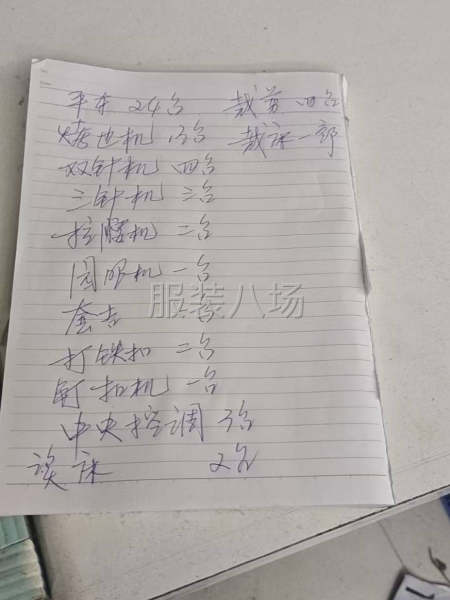 平车 24台 裁剪 四台
烤边机 台 裁床一部
双针机 四台
三针机 三台
拉腰机 二台
园眼机 一台
套吉 台
打铁扣 二台
钉扣机 一台
中央控调 3台
床 2台
服装八场